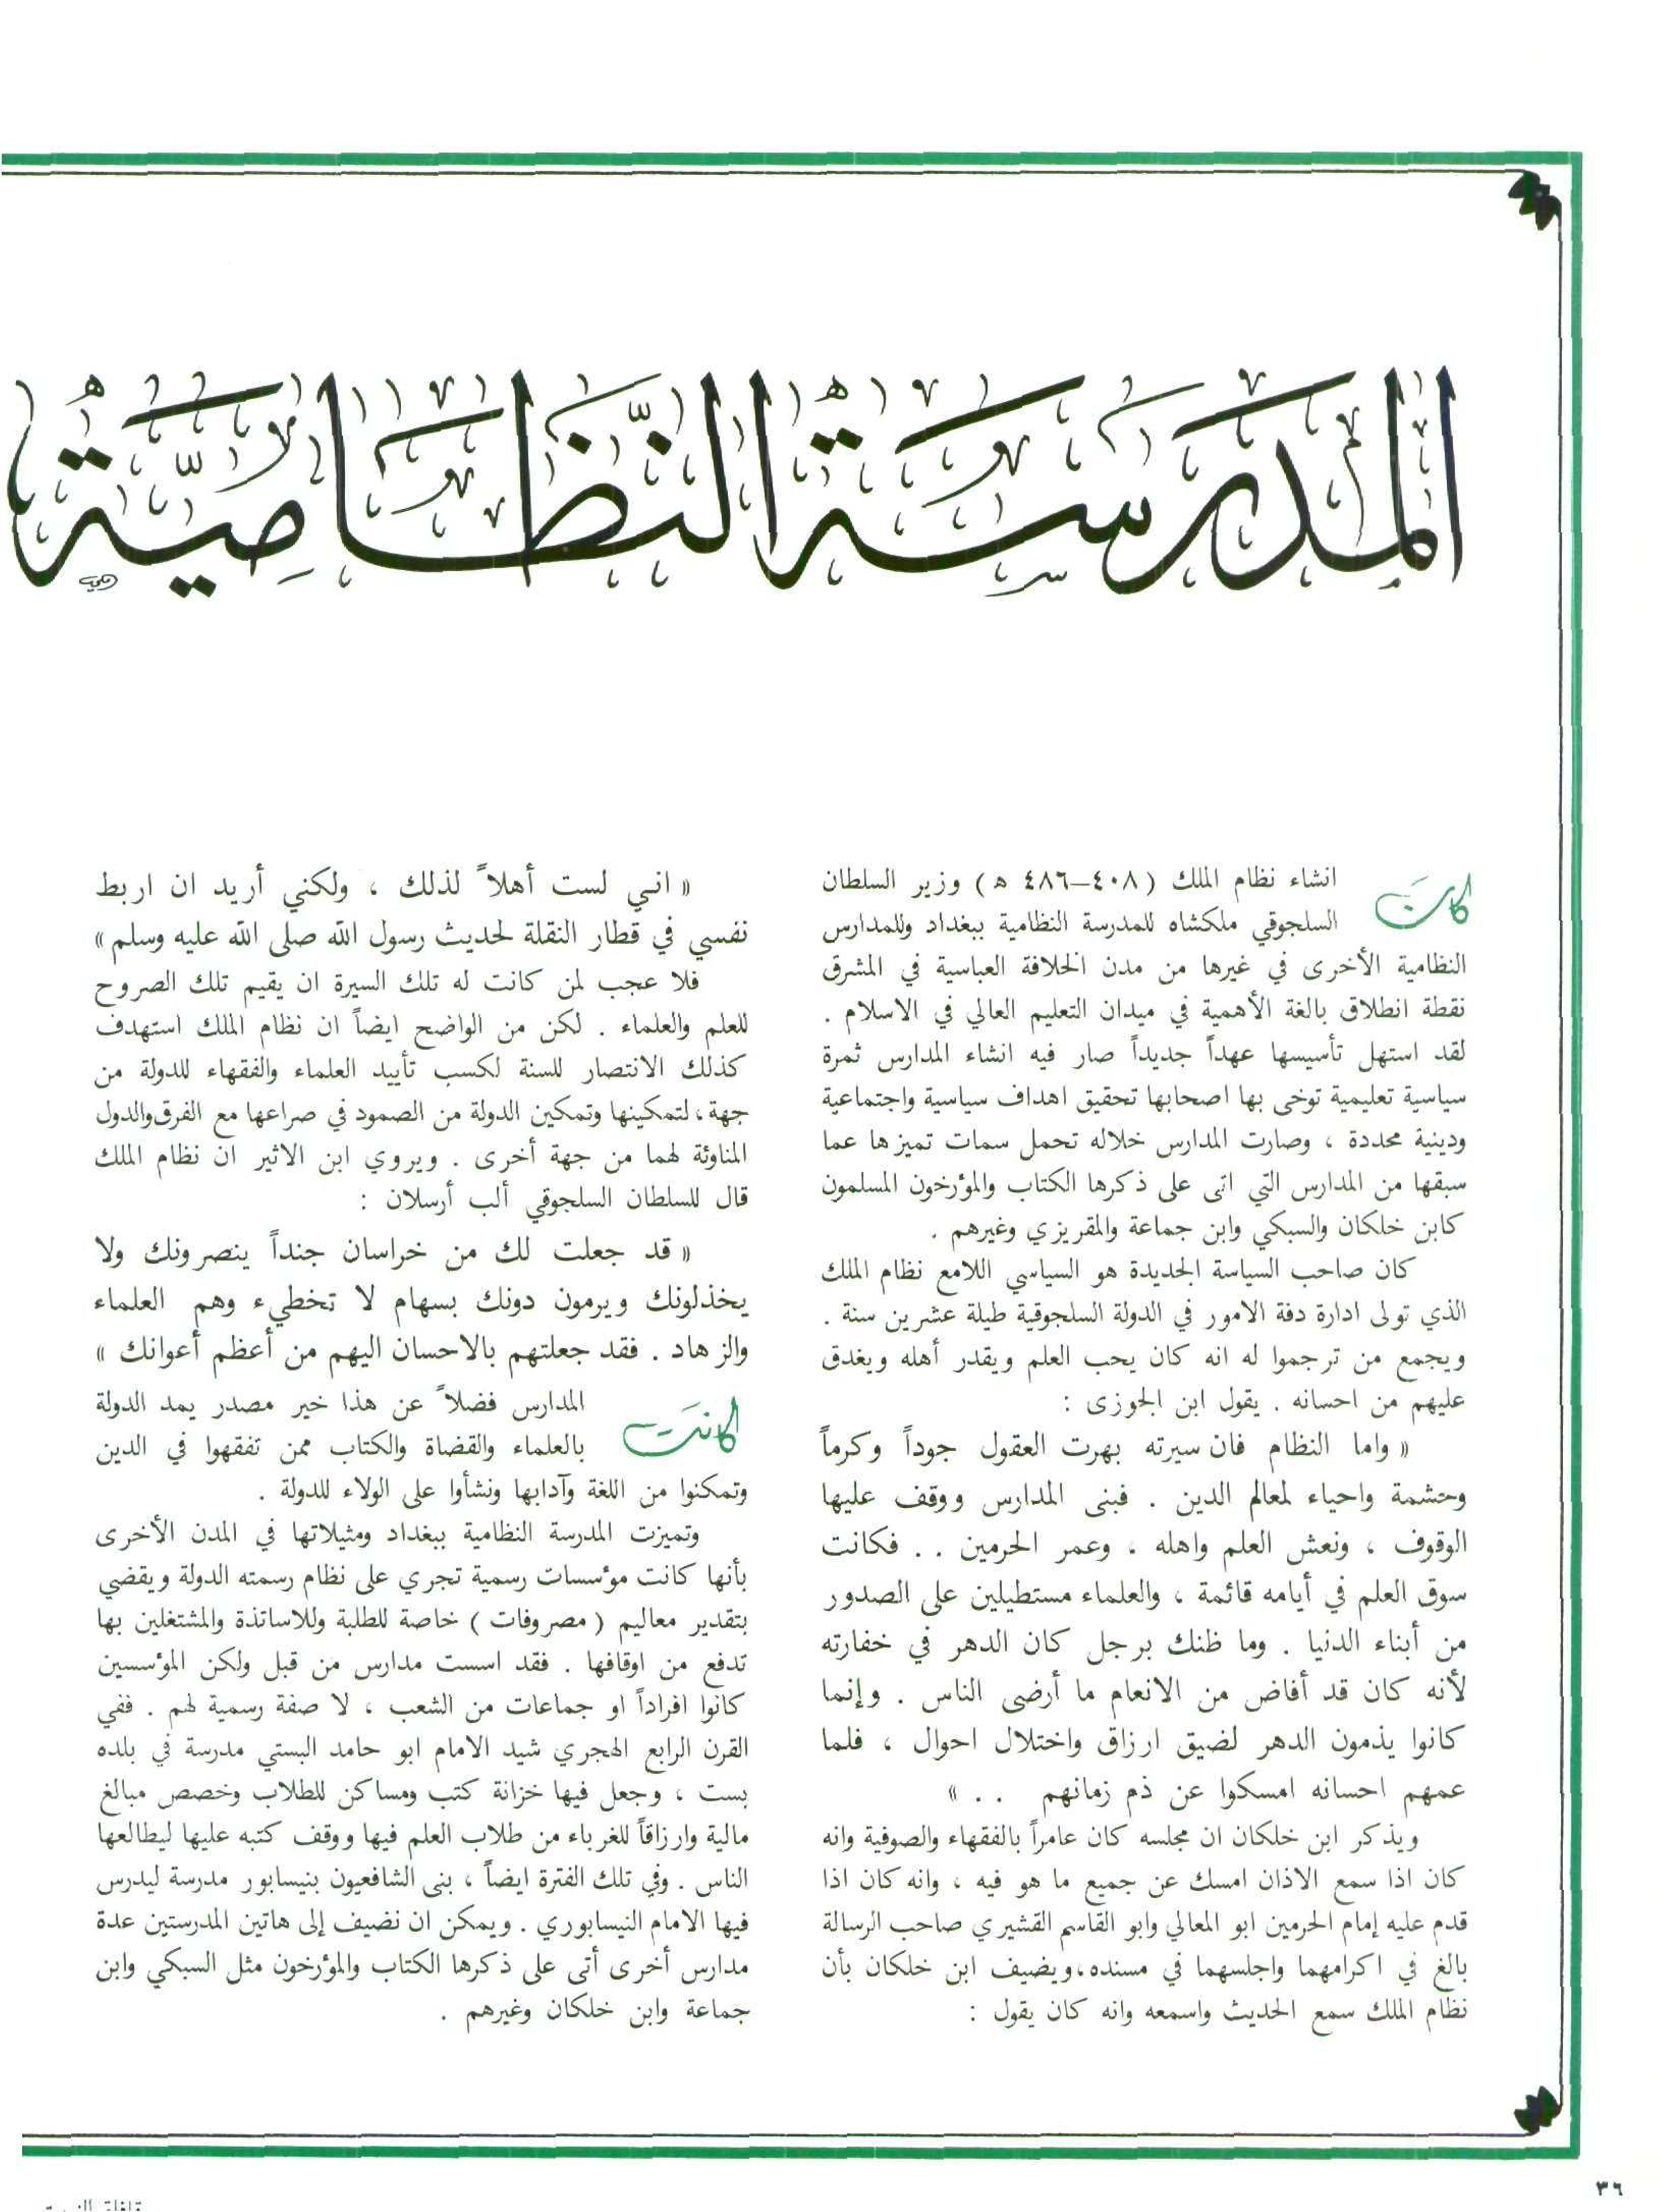 المدرسة النظامية
كان انشاء نظام الملك (٤٠٨–٤٨٦ ه) وزير السلطان
السلجوقي ملكشاه للمدرسة النظامية ببغداد وللمدارس
النظامية الأخرى في غيرها من مدن الخلافة العباسية في المشرق
نقطة انطلاق بالغة الأهمية في ميدان التعليم العالي في الاسلام .
لقد استهل تأسيسها عهداً جديداً صار فيه انشاء المدارس ثمرة
سياسية تعليمية توخى بها اصحابها تحقيق اهداف سياسية واجتماعية
ودينية محددة ، وصارت المدارس خلاله تحمل سمات تميزها عما
سبقها من المدارس التي اتى على ذكرها الكتاب والمؤرخون المسلمون
كابن خلكان والسبكي وابن جماعة والمقريزي وغيرهم .
كان صاحب السياسة الجديدة هو السياسي اللامع نظام الملك
الذي تولى ادارة دفة الامور في الدولة السلجوقية طيلة عشرين سنة .
ويجمع من ترجموا له انه كان يحب العلم ويقدر أهله ويغدق
عليهم من احسانه . يقول ابن الجوزى :
« واما النظام فان سيرته بهرت العقول جوداً وكرماً
وحشمة واحياء لمعالم الدين . فبنى المدارس ووقف عليها
الوقوف ، ونعش العلم واهله ، وعمر الحرمين . . فكانت
سوق العلم في أيامه قائمة ، والعلماء مستطيلين على الصدور
من أبناء الدنيا . وما ظنك برجل كان الدهر في خفارته
لأنه كان قد أفاض من الانعام ما أرضى الناس . وإنما
كانوا يذمون الدهر لضيق ارزاق واختلال احوال ، فلما
عمهم احسانه امسكوا عن ذم زمانهم . . »
ويذكر ابن خلكان ان مجلسه كان عامراً بالفقهاء والصوفية وانه
كان اذا سمع الاذان امسك عن جميع ما هو فيه ، وانه كان اذا
قدم عليه إمام الحرمين ابو المعالي وابو القاسم القشيري صاحب الرسالة
بالغ في اكرامهما واجلسهما في مسنده، ويضيف ابن خلكان بأن
نظام الملك سمع الحديث واسمعه وانه كان يقول :
« اني لست أهلاً لذلك ، ولكني أريد ان اربط
نفسي في قطار النقلة لحديث رسول الله صلى الله عليه وسلم »
فلا عجب لمن كانت له تلك السيرة ان يقيم تلك الصروح
للعلم والعلماء . لكن من الواضح ايضاً ان نظام الملك استهدف
كذلك الانتصار للسنة لكسب تأييد العلماء والفقهاء للدولة من
جهة، لتمكينها وتمكين الدولة من الصمود في صراعها مع الفرق والدول
المناوئة لهما من جهة أخرى . ويروي ابن الاثير ان نظام الملك
قال للسلطان السلجوقي ألب أرسلان :
« قد جعلت لك من خراسان جنداً ينصرونك ولا
يخذلونك ويرمون دونك بسهام لا تخطيء وهم العلماء
والزهاد . فقد جعلتهم بالاحسان اليهم من أعظم أعوانك »
كانت المدارس فضلاً عن هذا خير مصدر يمد الدولة
بالعلماء والقضاة والكتاب ممن تفقهوا في الدين
وتمكنوا من اللغة وآدابها ونشأوا على الولاء للدولة .
وتميزت المدرسة النظامية ببغداد ومثيلاتها في المدن الأخرى
بأنها كانت مؤسسات رسمية تجري على نظام رسمته الدولة ويقضي
بتقدير معاليم ( مصروفات ) خاصة للطلبة وللاساتذة والمشتغلين بها
تدفع من اوقافها . فقد اسست مدارس من قبل ولكن المؤسسين
كانوا افراداً او جماعات من الشعب ، لا صفة رسمية لهم . ففي
القرن الرابع الهجري شيد الامام ابو حامد البستي مدرسة في بلده
بست ، وجعل فيها خزانة كتب ومساكن للطلاب وخصص مبالغ
مالية وارزاقاً للغرباء من طلاب العلم فيها ووقف كتبه عليها ليطالعها
الناس . وفي تلك الفترة ايضاً ، بنى الشافعيون بنيسابور مدرسة ليدرس
فيها الامام النيسابوري . ويمكن ان نضيف إلى هاتين المدرستين عدة
مدارس أخرى أتى على ذكرها الكتاب والمؤرخون مثل السبكي وابن
جماعة وابن خلكان وغيرهم .
٣٦